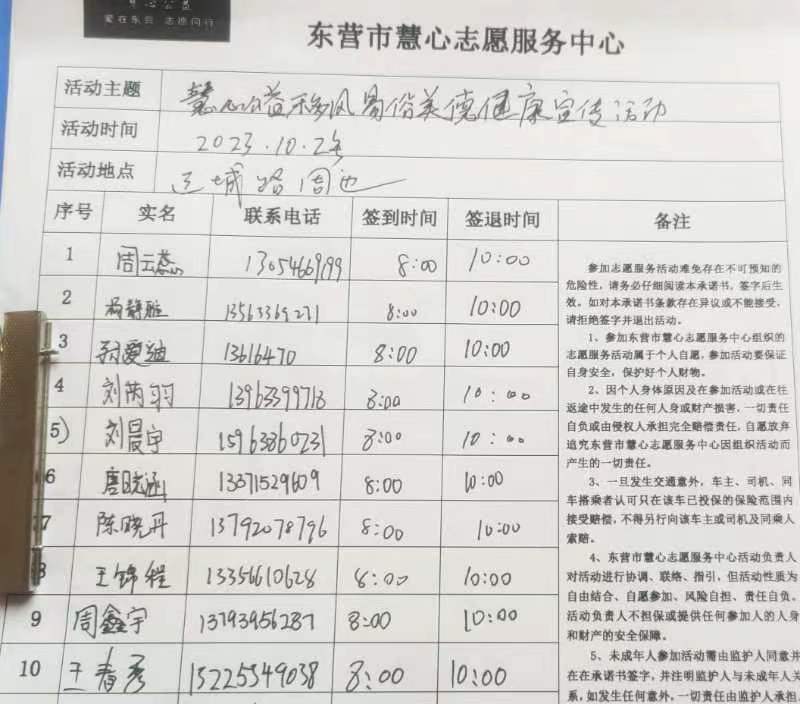 爱在东营 志愿同行
东营市慧心志愿服务中心
活动主题 慧心公益移风易俗美德健康宣传活动
活动时间 2023.10.2
活动地点 运城路周边
序号 实名 联系电话 签到时间 签退时间 备注
1 周云 13054669199 8:00 10:00
2 杨静 13563369271 8:00 10:00
3 孙爱迪 13616470 8:00 10:00
4 刘芮羽 13963399713 8:00 10:00
5) 刘晨宇 15963860231 8:00 10:00
6 唐晓涵 13371529609 8:00 10:00
7 陈晓丹 13792078796 8:00 10:00
8 王锦程 13356610628 8:00 10:00
9 周鑫宇 13793956287 8:00 10:00
10 王春彦 15225549038 8:00 10:00
参加志愿服务活动难免存在不可预知的
危险性,请务必仔细阅读本承诺书,签字后生
效。如对本承诺书条款存在异议或不能接受,
请拒绝签字并退出活动。
1、参加东营市慧心志愿服务中心组织的
志愿服务活动属于个人自愿,参加活动要保证
自身安全,保护好个人财物。
2、因个人身体原因及在参加活动或在往
返途中发生的任何人身或财产损害,一切责任
自负或由侵权人承担完全赔偿责任,自愿放弃
追究东营市慧心志愿服务中心因组织活动而
产生的一切责任。
3、一旦发生交通意外,车主、司机、同
车搭乘者认可只在该车已投保的保险范围内
接受赔偿,不得另行向该车主或司机及同乘人
索赔。
4、东营市慧心志愿服务中心活动负责人
对活动进行协调、联络、指引,但活动性质为
自由结合、自愿参加、风险自担、责任自负。
活动负责人不担保或提供任何参加人的人身
和财产的安全保障。
5、未成年人参加活动需由监护人同意并
在在承诺书签字,并注明监护人与未成年人关
系,如发生任何意外,一切责任由监护人承担。